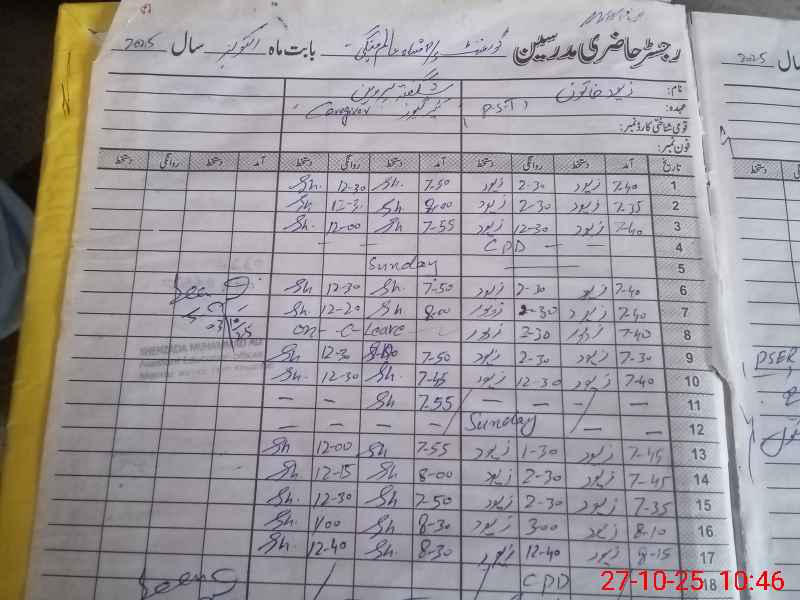 رجسٹر حاضری مدرسین گورنمنٹ بابت ماہ اکتوبر سال 2025
سال 2025
نام: زیور خاتون شگفتہ پروین
عہدہ: PST Caregiver
قومی شناختی کارڈ نمبر:
فون نمبر:
تاریخ آمد دستخط روانگی دستخط آمد دستخط روانگی دستخط آمد دستخط روانگی دستخط
1 7-40 زیور 2-30 زیور 7-50 Sh. 12-30 Sh.
2 7-35 زیور 2-30 زیور 8-00 Sh 12-3 Sh
3 7-40 زیور 12-30 زیور 7-55 Sh 12-00 Sh
4 — — CPD — —
5 — Sunday
6 7-40 زیور 2-30 زیور 7-50 Sh. 12-30 Sh
7 7-40 زیور 2-30 زیور 8-00 Sh. 12-20 Sh
8 7-40 زیور 2-30 زیور on - C - Leave
9 7-30 زیور 2-30 زیور 7-50 Sh 12-30 Sh
10 7-40 زیور 12-30 زیور 7-45 Sh. 12-30 Sh.
11 — — — 7-55 Sh — —
12 — — Sunday — — — —
13 7-45 زیور 1-30 زیور 7-55 Sh 12-00 Sh
14 7-45 زیور 2-30 زیور 8-00 Sh 12-15 Sh
15 7-35 زیور 2-30 زیور 7-50 Sh 12-30 Sh.
16 8-10 زیور 3-00 زیور 8-30 Sh 1-00 Sh.
17 8-15 زیور 12-40 زیور 8-30 Sh. 12-40 Sh.
18 CPD
Seen
Seen
دستخط
PSER
27-10-25 10:46